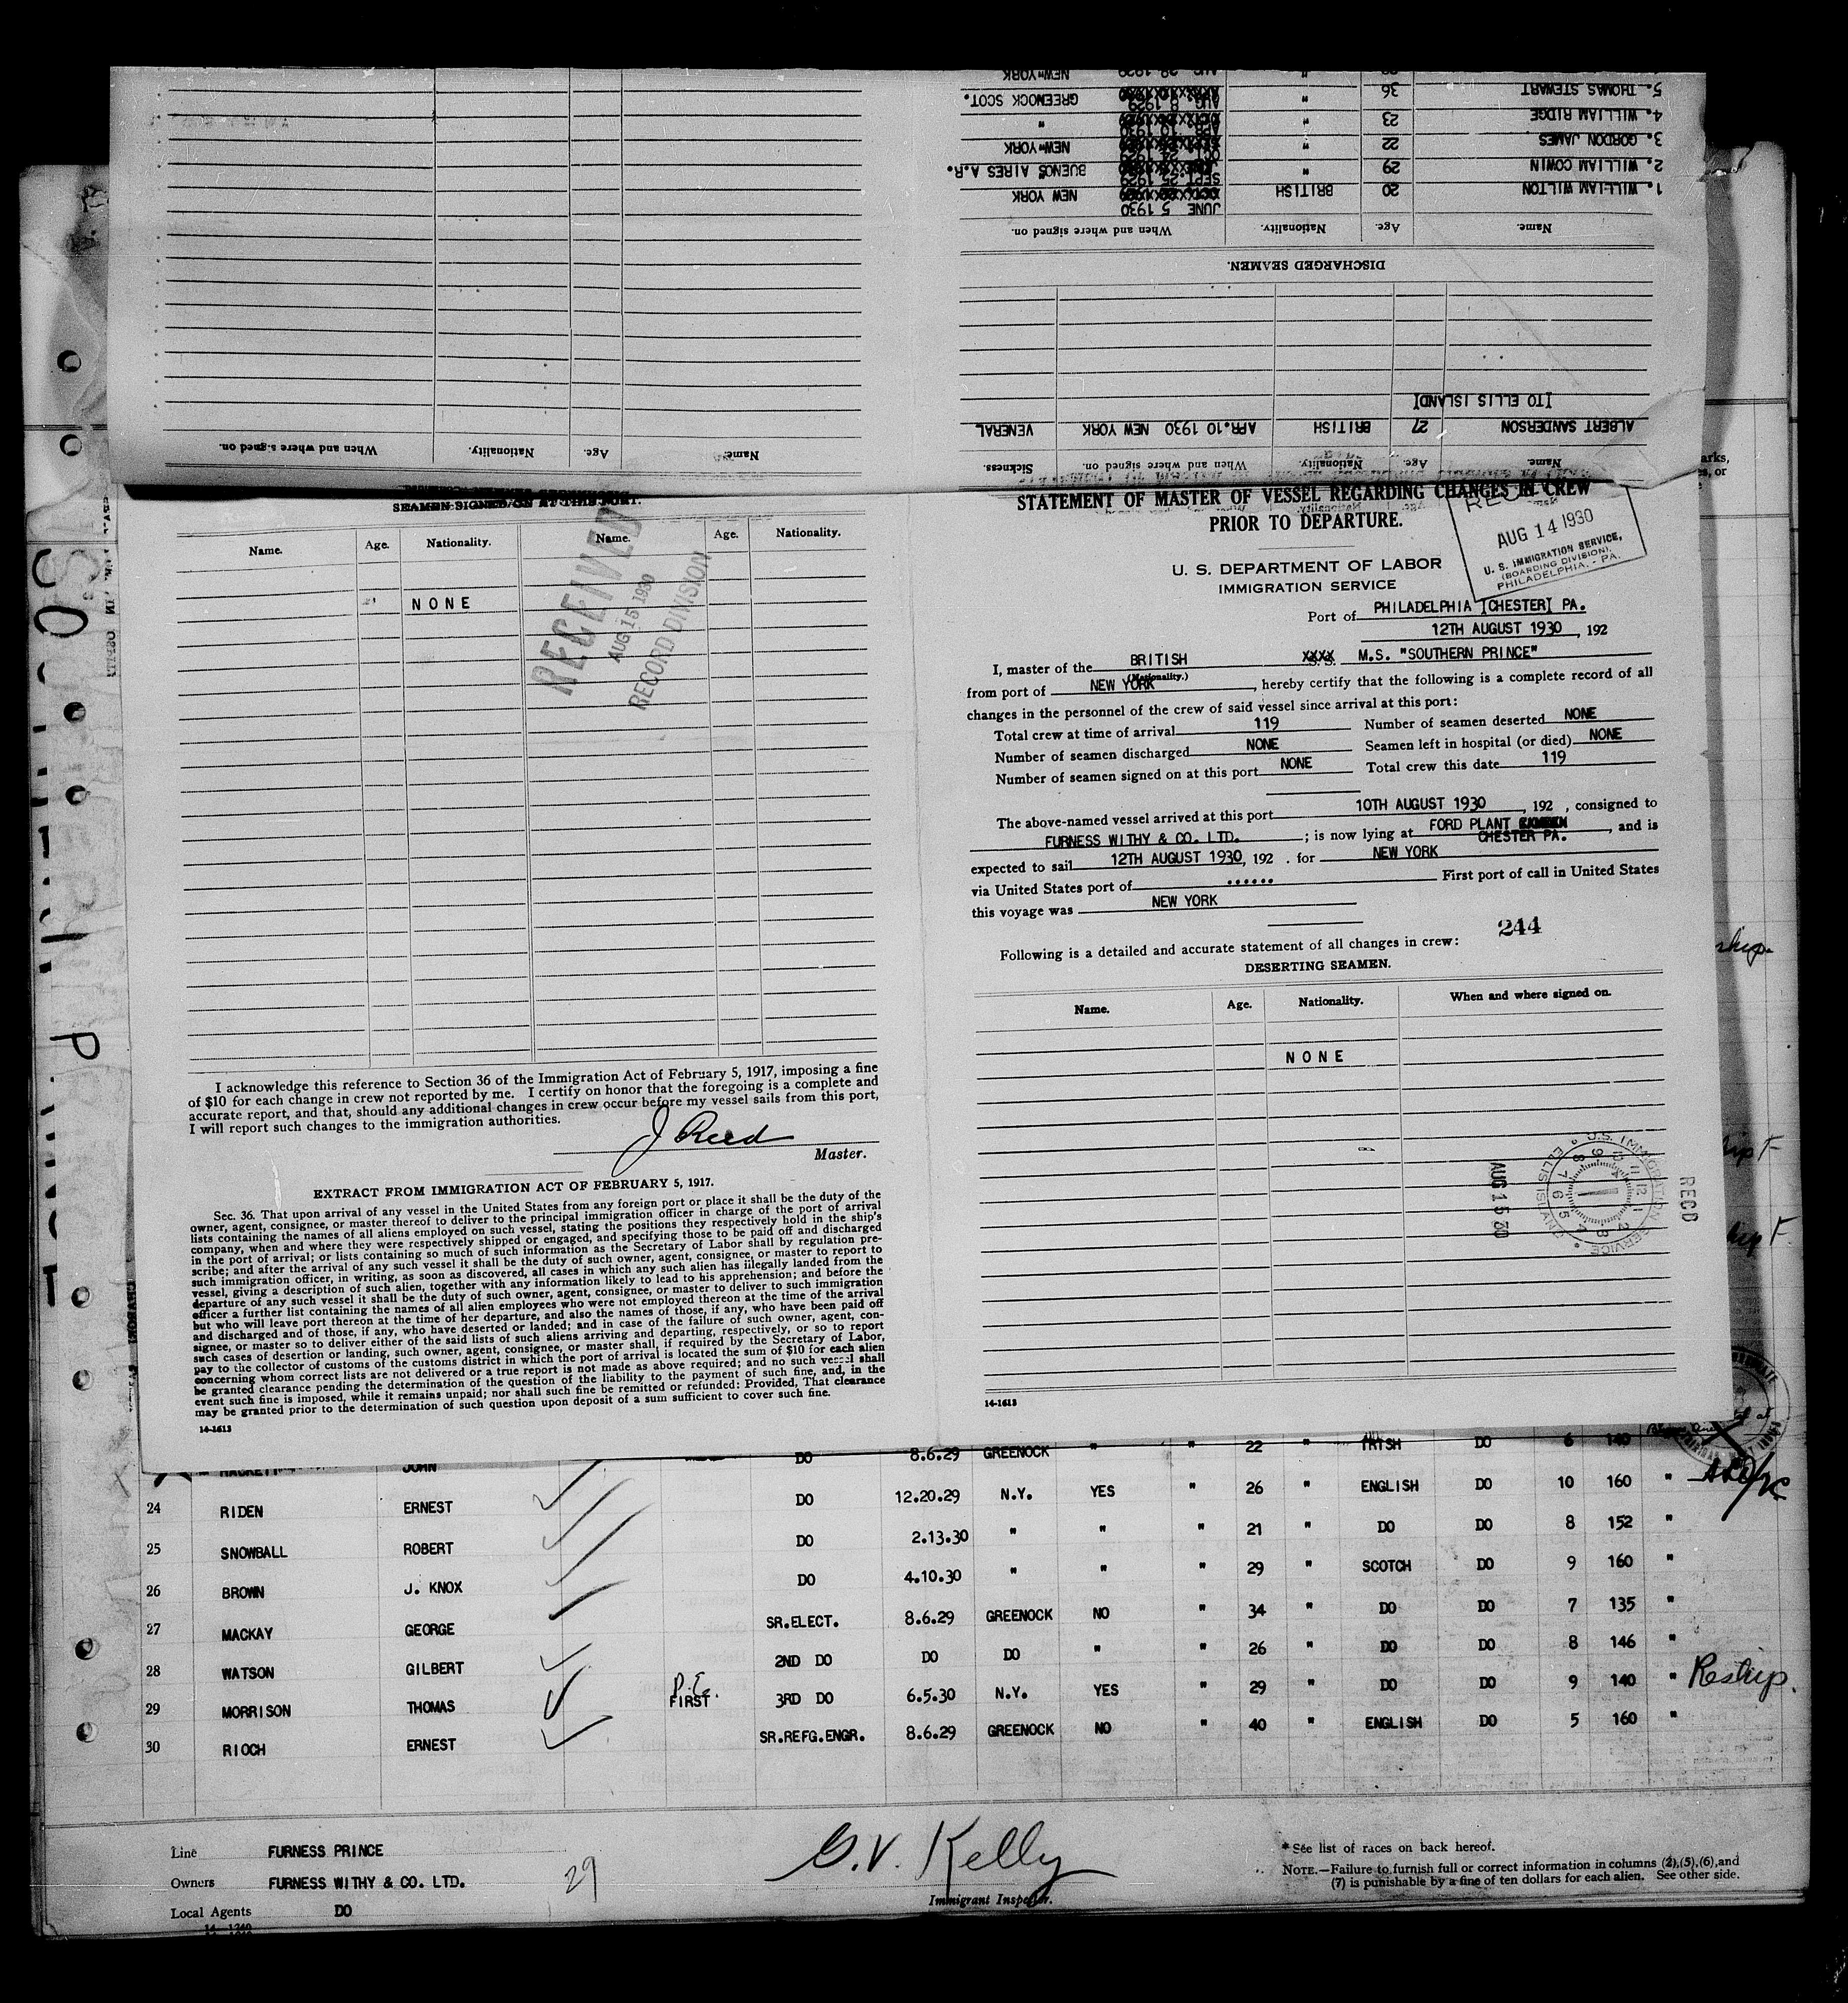 NEW YORK " AUG 28 1929
5. THOMAS STEWART 36 " AUG. 8 1929 GREENOCK SCOT.
4. WILLIAM RIDGE 23 " APR 10 1930 "
3. GORDON JAMES 22 " OCT. 24 1929 NEW YORK
2. WILLIAM COWIN 29 " SEPT 25 1929 BUENOS AIRES A.R.
1. WILLIAM WILTON 20 BRITISH JUNE 5 1930 NEW YORK
Name. Age. Nationality. When and where signed on.
DISCHARGED SEAMEN.
[TO ELLIS ISLAND]
ALBERT SANDERSON 27 BRITISH APR.10 1930 NEW YORK VENERAL
Name. Age. Nationality. When and where signed on. Sickness.
Name. Age. Nationality. When and where signed on.
SEAMEN SIGNED ON AT THIS PORT.
Name. Age. Nationality. Name. Age. Nationality.
NONE
RECEIVED
AUG 15 1930
RECORD DIVISION
I acknowledge this reference to Section 36 of the Immigration Act of February 5, 1917, imposing a fine
of $10 for each change in crew not reported by me. I certify on honor that the foregoing is a complete and
accurate report, and that, should any additional changes in crew occur before my vessel sails from this port,
I will report such changes to the immigration authorities.
J Reed
Master.
EXTRACT FROM IMMIGRATION ACT OF FEBRUARY 5, 1917.
Sec. 36. That upon arrival of any vessel in the United States from any foreign port or place it shall be the duty of the
owner, agent, consignee, or master thereof to deliver to the principal immigration officer in charge of the port of arrival
lists containing the names of all aliens employed on such vessel, stating the positions they respectively hold in the ship's
company, when and where they were respectively shipped or engaged, and specifying those to be paid off and discharged
in the port of arrival; or lists containing so much of such information as the Secretary of Labor shall by regulation pre-
scribe; and after the arrival of any such vessel it shall be the duty of such owner, agent, consignee, or master to report to
such immigration officer, in writing, as soon as discovered, all cases in which any such alien has illegally landed from the
vessel, giving a description of such alien, together with any information likely to lead to his apprehension; and before the
departure of any such vessel it shall be the duty of such owner, agent, consignee, or master to deliver to such immigration
officer a further list containing the names of all alien employees who were not employed thereon at the time of the arrival
but who will leave port thereon at the time of her departure, and also the names of those, if any, who have been paid off
and discharged and of those, if any, who have deserted or landed; and in case of the failure of such owner, agent, con-
signee, or master so to deliver either of the said lists of such aliens arriving and departing, respectively, or so to report
such cases of desertion or landing, such owner, agent, consignee, or master shall, if required by the Secretary of Labor,
pay to the collector of customs of the customs district in which the port of arrival is located the sum of $10 for each alien
concerning whom correct lists are not delivered or a true report is not made as above required; and no such vessel shall
be granted clearance pending the determination of the question of the liability to the payment of such fine, and, in the
event such fine is imposed, while it remains unpaid; nor shall such fine be remitted or refunded: Provided, That clearance
may be granted prior to the determination of such question upon deposit of a sum sufficient to cover such fine.
14-1613
STATEMENT OF MASTER OF VESSEL REGARDING CHANGES IN CREW
PRIOR TO DEPARTURE.
AUG 14 1930
U. S. IMMIGRATION SERVICE,
(BOARDING DIVISION),
PHILADELPHIA, - PA.
U. S. DEPARTMENT OF LABOR
IMMIGRATION SERVICE
Port of PHILADELPHIA [CHESTER] PA.
12TH AUGUST 1930, 192
I, master of the BRITISH XXXX M.S. "SOUTHERN PRINCE"
(Nationality.)
from port of NEW YORK, hereby certify that the following is a complete record of all
changes in the personnel of the crew of said vessel since arrival at this port:
Total crew at time of arrival 119 Number of seamen deserted NONE
Number of seamen discharged NONE Seamen left in hospital (or died) NONE
Number of seamen signed on at this port NONE Total crew this date 119
The above-named vessel arrived at this port 10TH AUGUST 1930, 192 , consigned to
FURNESS WITHY & CO. LTD. ; is now lying at FORD PLANT CHESTER PA. , and is
expected to sail 12TH AUGUST 1930, 192 . for NEW YORK
via United States port of ...... First port of call in United States
this voyage was NEW YORK
244
Following is a detailed and accurate statement of all changes in crew:
DESERTING SEAMEN.
Name. Age. Nationality. When and where signed on.
NONE
RECD
U.S. IMMIGRATION SERVICE ELLIS ISLAND
AUG 15 30
14-1613
HACKETT JOHN DO 8.6.29 GREENOCK " " 22 " IRISH DO 6 140
24 RIDEN ERNEST DO 12.20.29 N.Y. YES " 26 " ENGLISH DO 10 160 "
25 SNOWBALL ROBERT DO 2.13.30 " " " 21 " DO DO 8 152 "
26 BROWN J. KNOX DO 4.10.30 " " " 29 " SCOTCH DO 9 160 "
27 MACKAY GEORGE SR.ELECT. 8.6.29 GREENOCK NO " 34 " DO DO 7 135 "
28 WATSON GILBERT 2ND DO DO DO " " 26 " DO DO 8 146 "
29 MORRISON THOMAS P.E. FIRST 3RD DO 6.5.30 N.Y. YES " 29 " DO DO 9 140 " Reship.
30 RIOCH ERNEST SR.REFG.ENGR. 8.6.29 GREENOCK NO " 40 " ENGLISH DO 5 160 "
Line FURNESS PRINCE
Owners FURNESS WITHY & CO. LTD.
Local Agents DO
29
G.V. Kelly
Immigrant Inspector.
* See list of races on back hereof.
NOTE.—Failure to furnish full or correct information in columns (2),(5),(6),and
(7) is punishable by a fine of ten dollars for each alien. See other side.